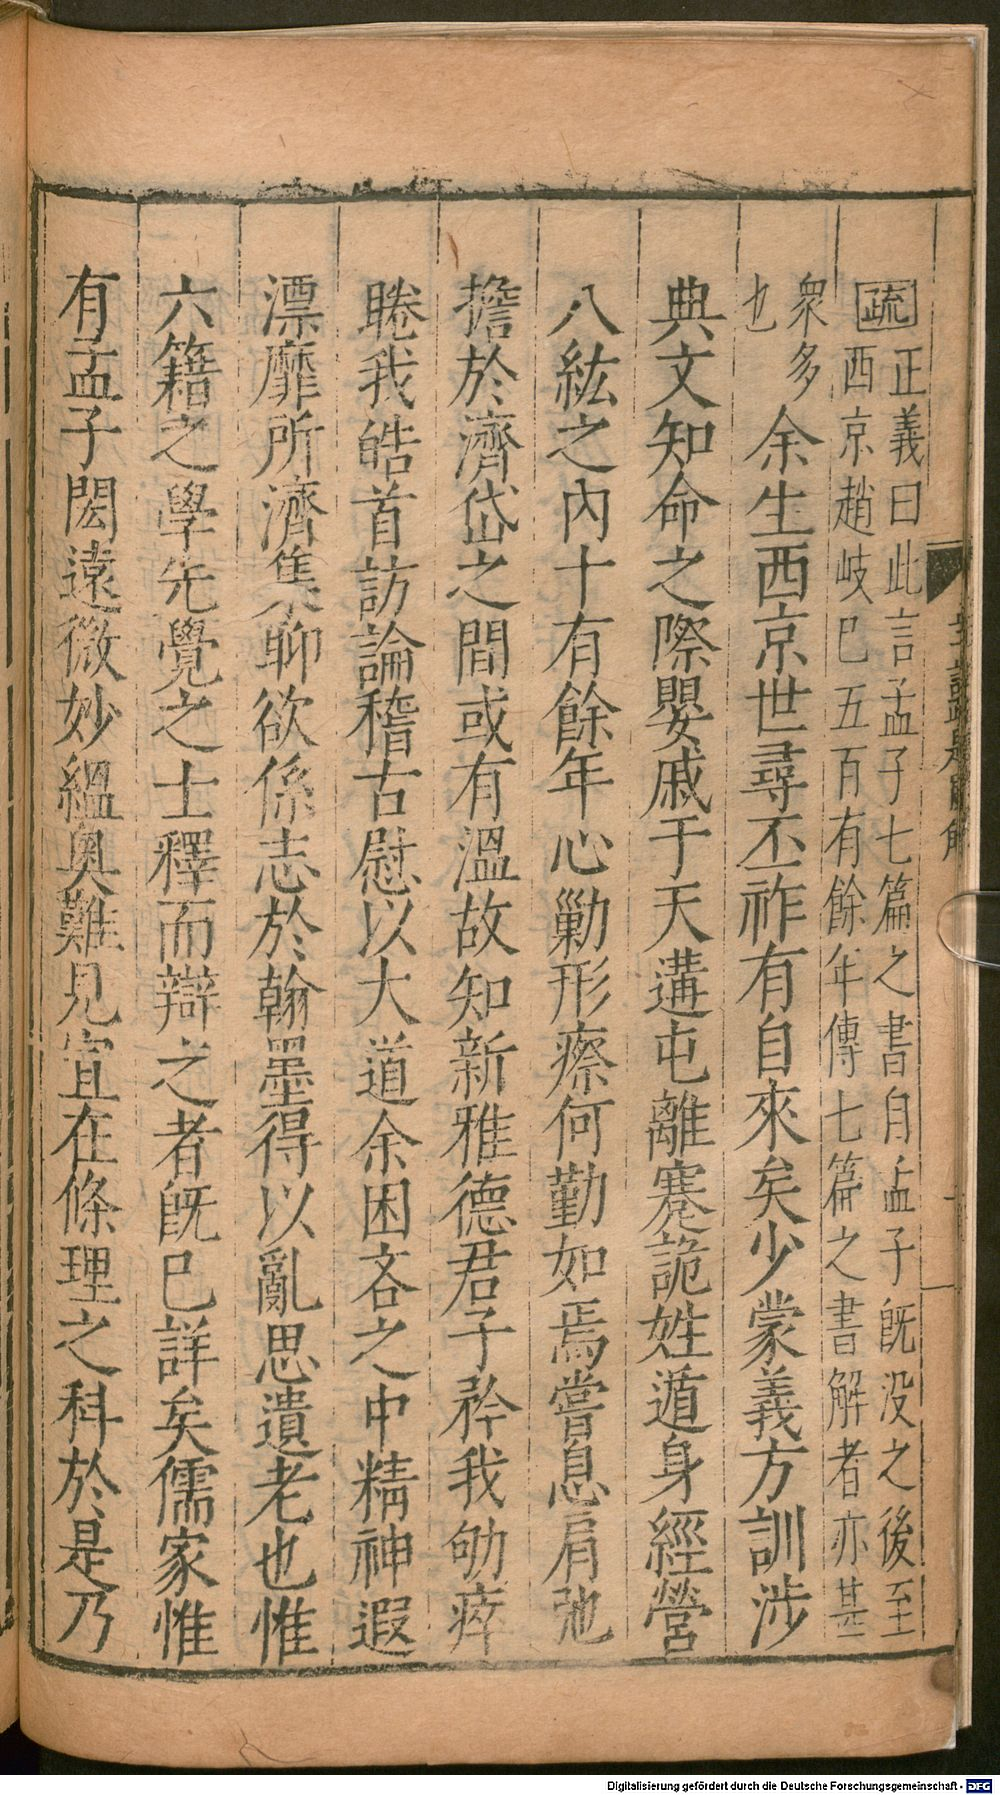 疏正義曰此言孟子七篇之書自孟子旣没之後至
西京趙岐巳五百有餘年傳七篇之書解者亦甚
衆多
也
余生西京世尋丕祚有自來矣少蒙義方訓涉
典文知命之際嬰戚于天遘屯離蹇詭姓遁身經營
八紘之內十有餘年心勦形瘵何勤如焉嘗息肩弛
擔於濟岱之間或有溫故知新雅德君子矜我劬瘁
睠我皓首訪論稽古慰以大道余困吝之中精神遐
漂靡所濟集聊欲係志於翰墨得以亂思遺老也惟
六籍之學先覺之士釋而辯之者旣巳詳矣儒家惟
有孟子閎遠微妙縕奥難見宜在條理之科於是乃
Digitalisierung gefördert durch die Deutsche Forschungsgemeinschaft - DFG